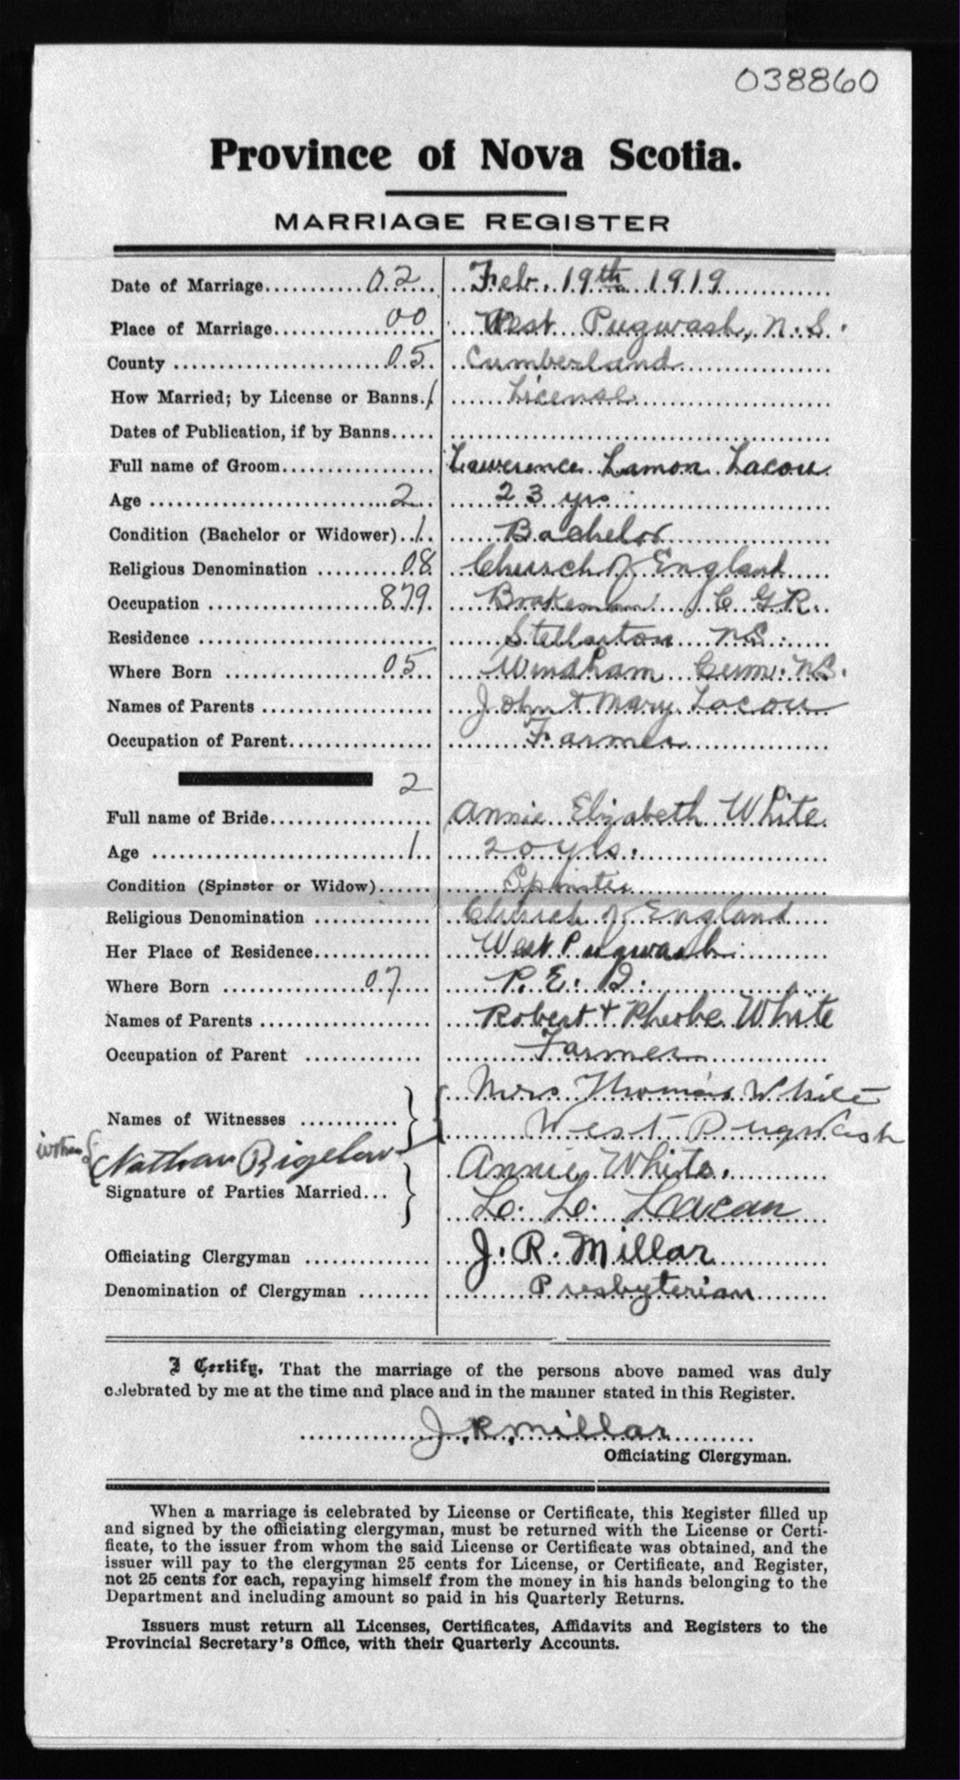 038860
Province of Nova Scotia.
MARRIAGE REGISTER
Date of Marriage 02 Feb. 19th 1919
Place of Marriage 00 West Pugwash, N.S.
County 05 Cumberland
How Married; by License or Banns. 1 License
Dates of Publication, if by Banns
Full name of Groom Lawerence Lamon Lacou
Age 2 23 yrs
Condition (Bachelor or Widower) 1 Bachelor
Religious Denomination 08 Church of England
Occupation 879 Brakeman C G R.
Residence Stellarton N.S.
Where Born 05 Windham Cum. N.S.
Names of Parents John & Mary Lacou
Occupation of Parent Farmer
2
Full name of Bride Annie Elizabeth White
Age 1 20 yrs.
Condition (Spinster or Widow) Spinster
Religious Denomination Church of England
Her Place of Residence West Pugwash
Where Born 07 P. E. I.
Names of Parents Robert & Pheobe White
Occupation of Parent Farmer
Mrs Thomas White
Names of Witnesses West Pugwash
Nathan Bigelow Annie White.
Signature of Parties Married... L. L. Lacau
Officiating Clergyman J. R. Millar
Denomination of Clergyman Presbyterian
I Certify, That the marriage of the persons above named was duly
celebrated by me at the time and place and in the manner stated in this Register.
J. R. Millar
Officiating Clergyman.
When a marriage is celebrated by License or Certificate, this Register filled up
and signed by the officiating clergyman, must be returned with the License or Certi-
ficate, to the issuer from whom the said License or Certificate was obtained, and the
issuer will pay to the clergyman 25 cents for License, or Certificate, and Register,
not 25 cents for each, repaying himself from the money in his hands belonging to the
Department and including amount so paid in his Quarterly Returns.
Issuers must return all Licenses, Certificates, Affidavits and Registers to the
Provincial Secretary's Office, with their Quarterly Accounts.